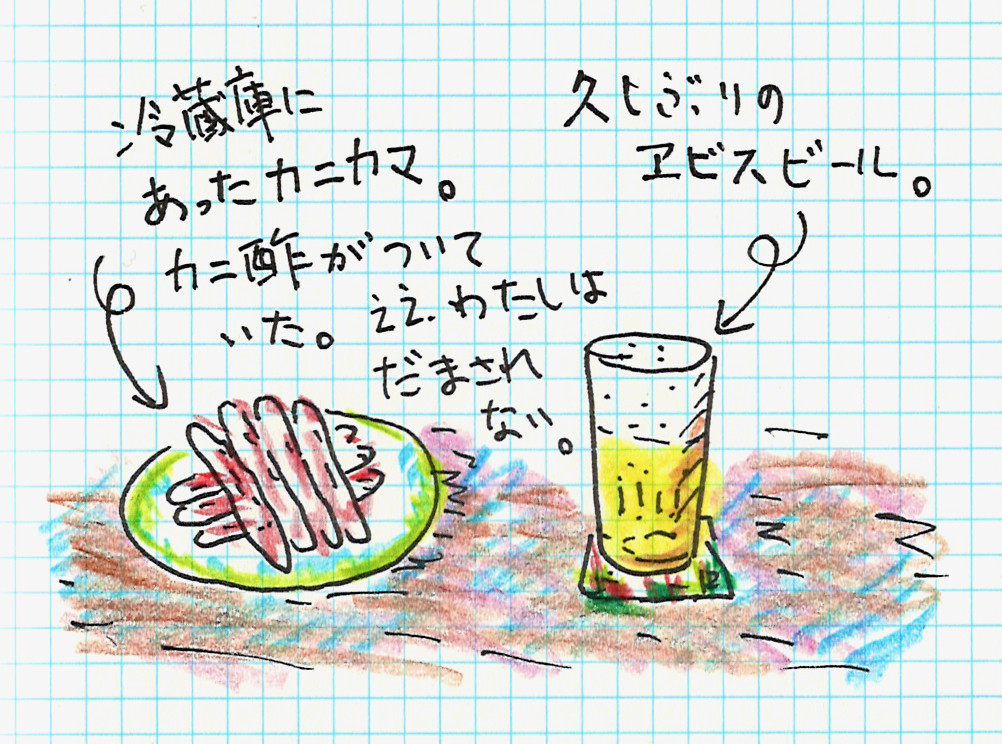 冷蔵庫に
あったカニカマ。
カニ酢がついて
いた。
ええ、わたしは
だまされ
ない。
久しぶりの
ヱビスビール。